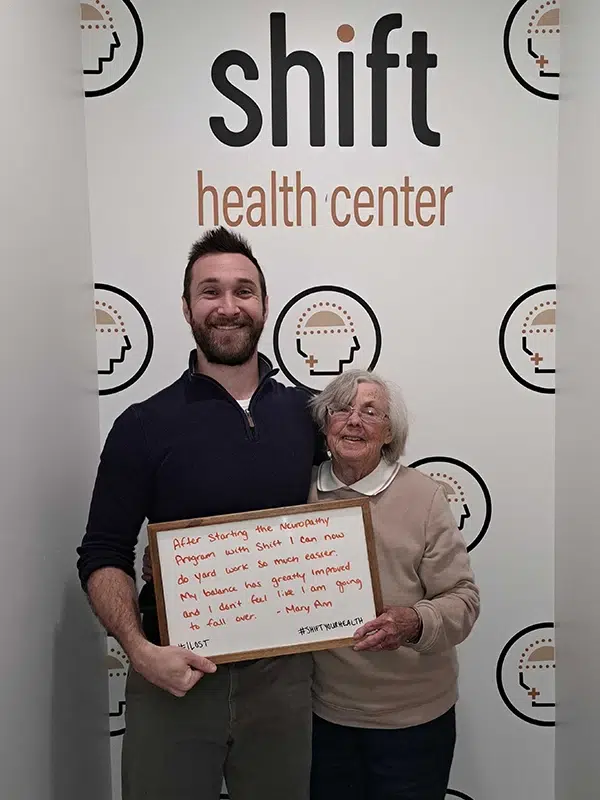 shift
health center
After Starting the Neuropathy
Program with Shift I can now
do yard work so much easier.
My balance has greatly improved
and I don't feel like I am going
to fall over. - Mary Ann
#SHIFTYOURHEALTH